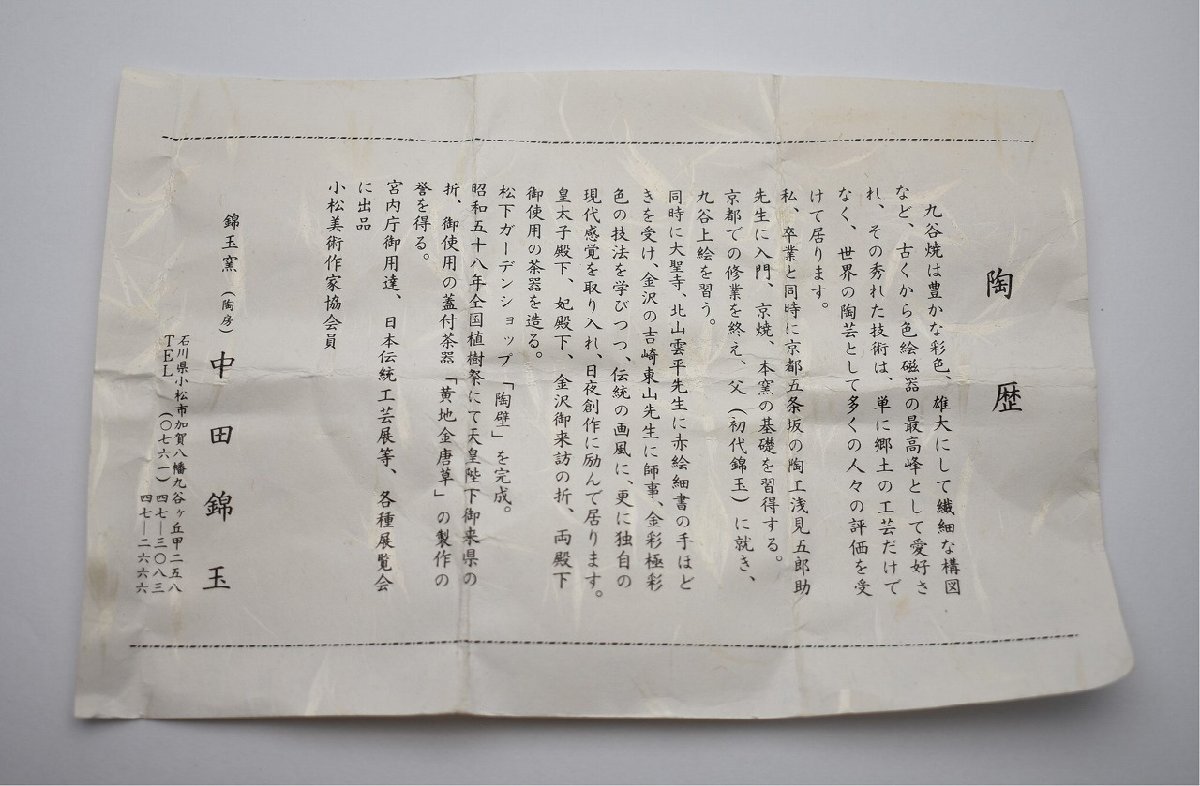 陶歴
九谷焼は豊かな彩色、雄大にして繊細な構図
など、古くから色絵磁器の最高峰として愛好さ
れ、その秀れた技術は、単に郷土の工芸だけで
なく、世界の陶芸として多くの人々の評価を受
けて居ります。
私、卒業と同時に京都五条坂の陶工浅見五郎助
先生に入門、京焼、本窯の基礎を習得する。
京都での修業を終え、父(初代錦玉)に就き、
九谷上絵を習う。
同時に大聖寺、北山雲平先生に赤絵細書の手ほど
きを受け、金沢の吉崎東山先生に師事、金彩極彩
色の技法を学びつつ、伝統の画風に、更に独自の
現代感覚を取り入れ、日夜創作に励んで居ります。
皇太子殿下、妃殿下、金沢御来訪の折、両殿下
御使用の茶器を造る。
松下ガーデンショップ「陶壁」を完成。
昭和五十八年全国植樹祭にて天皇陛下御来県の
折、御使用の蓋付茶器「黄地金唐草」の製作の
誉を得る。
宮内庁御用達、日本伝統工芸展等、各種展覧会
に出品
小松美術作家協会員
錦玉窯(陶房)中田錦玉
石川県小松市加賀八幡九谷ヶ丘甲二五八
TEL(〇七六一)四七―三〇八三
四七―二六六六